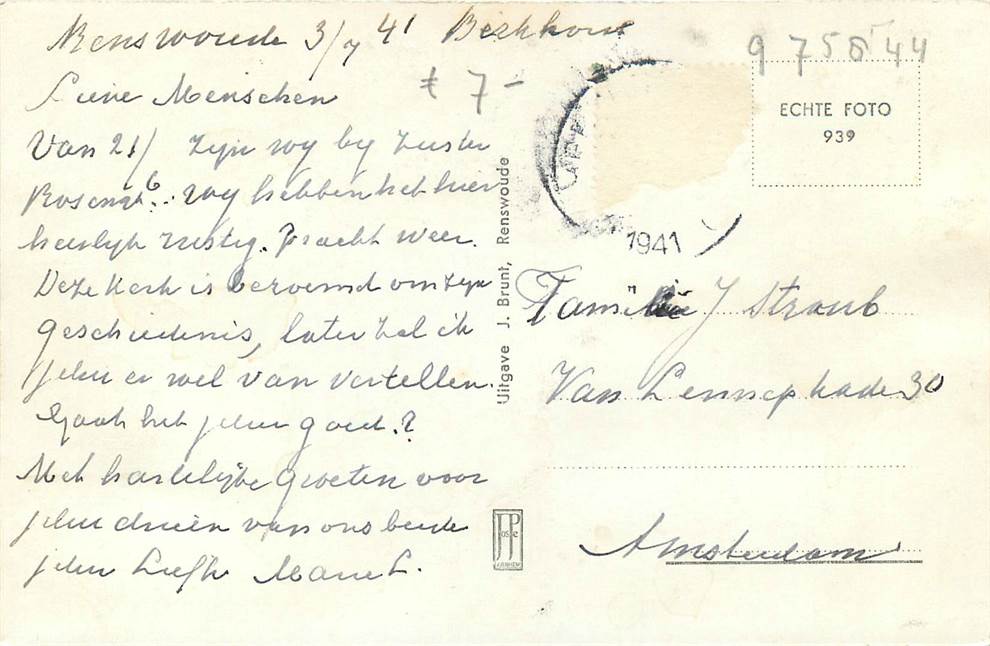 Renswoude 3/7 41 Berkhout
Lieve Menschen
€ 7 -
Van 21/6 zijn wij bij Zuster
wij hebben het hier
heerlijk rustig. Pracht weer.
Deze Kerk is beroemd om zijn
geschiedenis, later zal ik
jelui er wel van vertellen.
Gaat het jelui goed?
Met hartelijke groeten voor
jelui drieën van ons beide
jelui Liefh
Uitgave J. Brunt, Renswoude
JosPé
ARNHEM
975844
ECHTE FOTO
939
1941
Familie J Straub
Van Lennepkade 30
Amsterdam